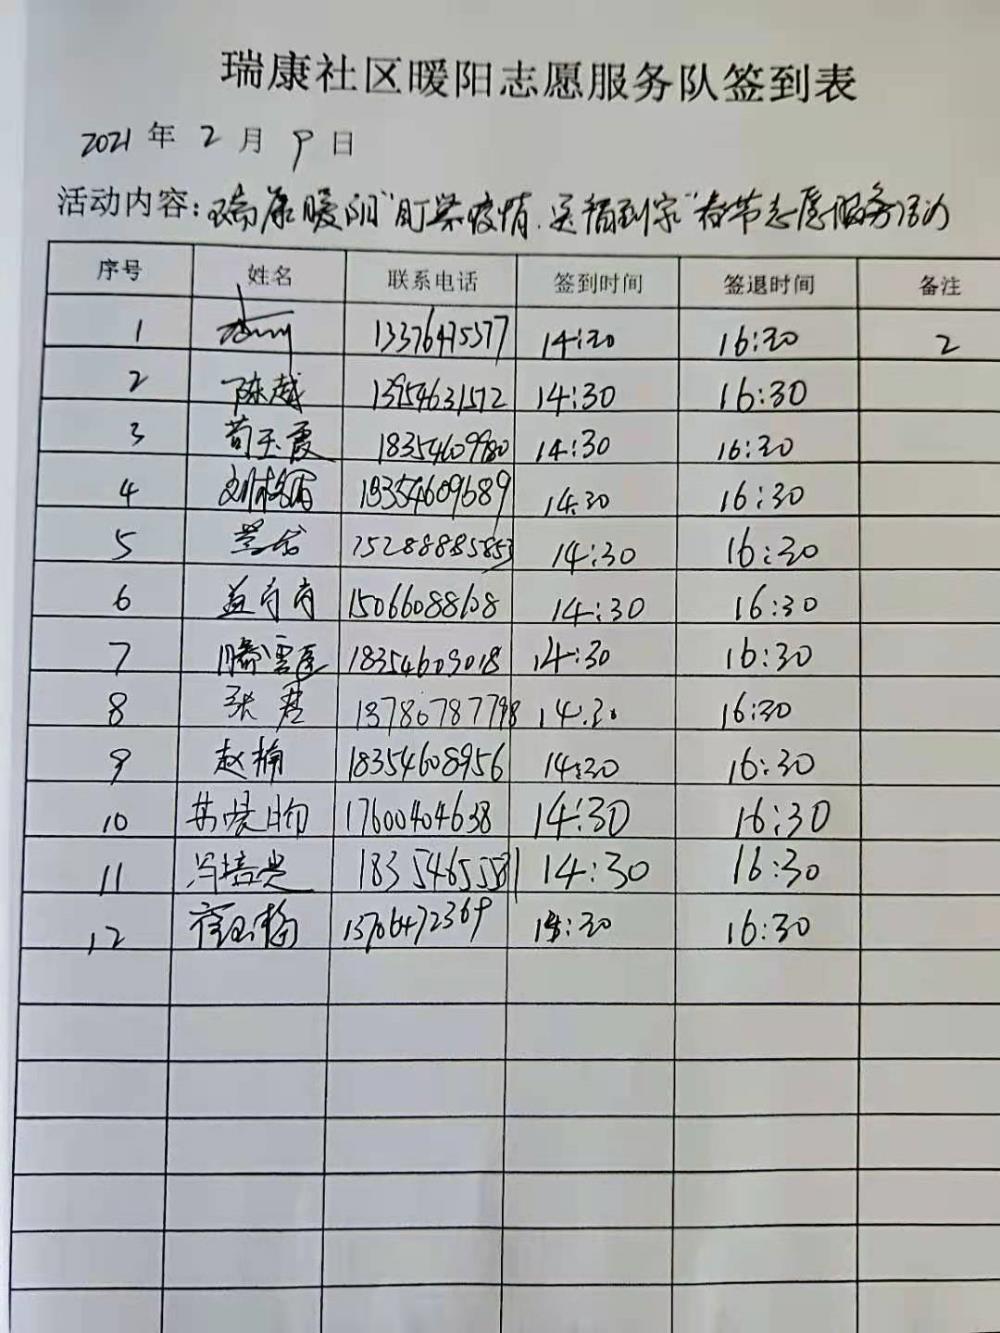 瑞康社区暖阳志愿服务队签到表
2021 年 2 月 9 日
活动内容：瑞康暖阳"盯紧疫情.送福到家"春节志愿服务活动
序号 姓名 联系电话 签到时间 签退时间 备注
1 13376475377 14:30 16:30 2
2 陈越 13954631572 14:30 16:30
3 苟玉霞 18354609980 14:30 16:30
4 18354609689 14:30 16:30
5 15288885853 14:30 16:30
6 15066088608 14:30 16:30
7 18354609018 14:30 16:30
8 张君 13780787798 14:30 16:30
9 赵楠 18354608956 14:30 16:30
10 17600404638 14:30 16:30
11 冯培党 18354655581 14:30 16:30
12 13706472369 14:30 16:30